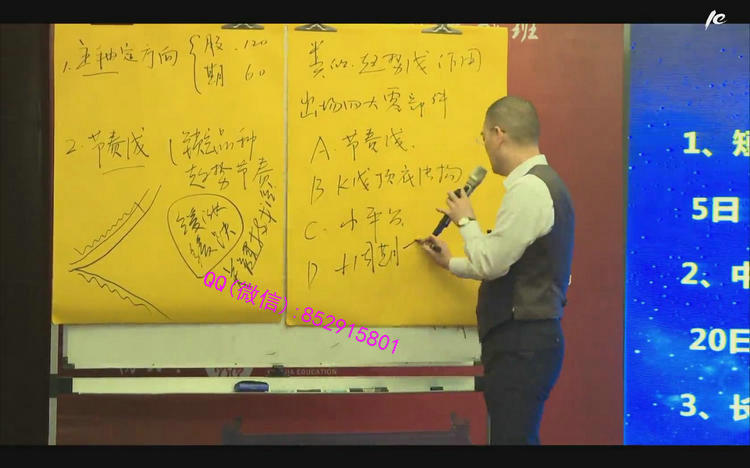 1. 主轴定方向 { 股 . 120
期 60
2. 节奏线
锁定品种
趋势节奏
类似趋势线作用
出场四大零部件
A. 节奏线.
B K线顶底结构
C. 小平台
D 大周期
QQ(微信):852915801
EDUCATION
班
1、短
5日
2、中
20日
3、长